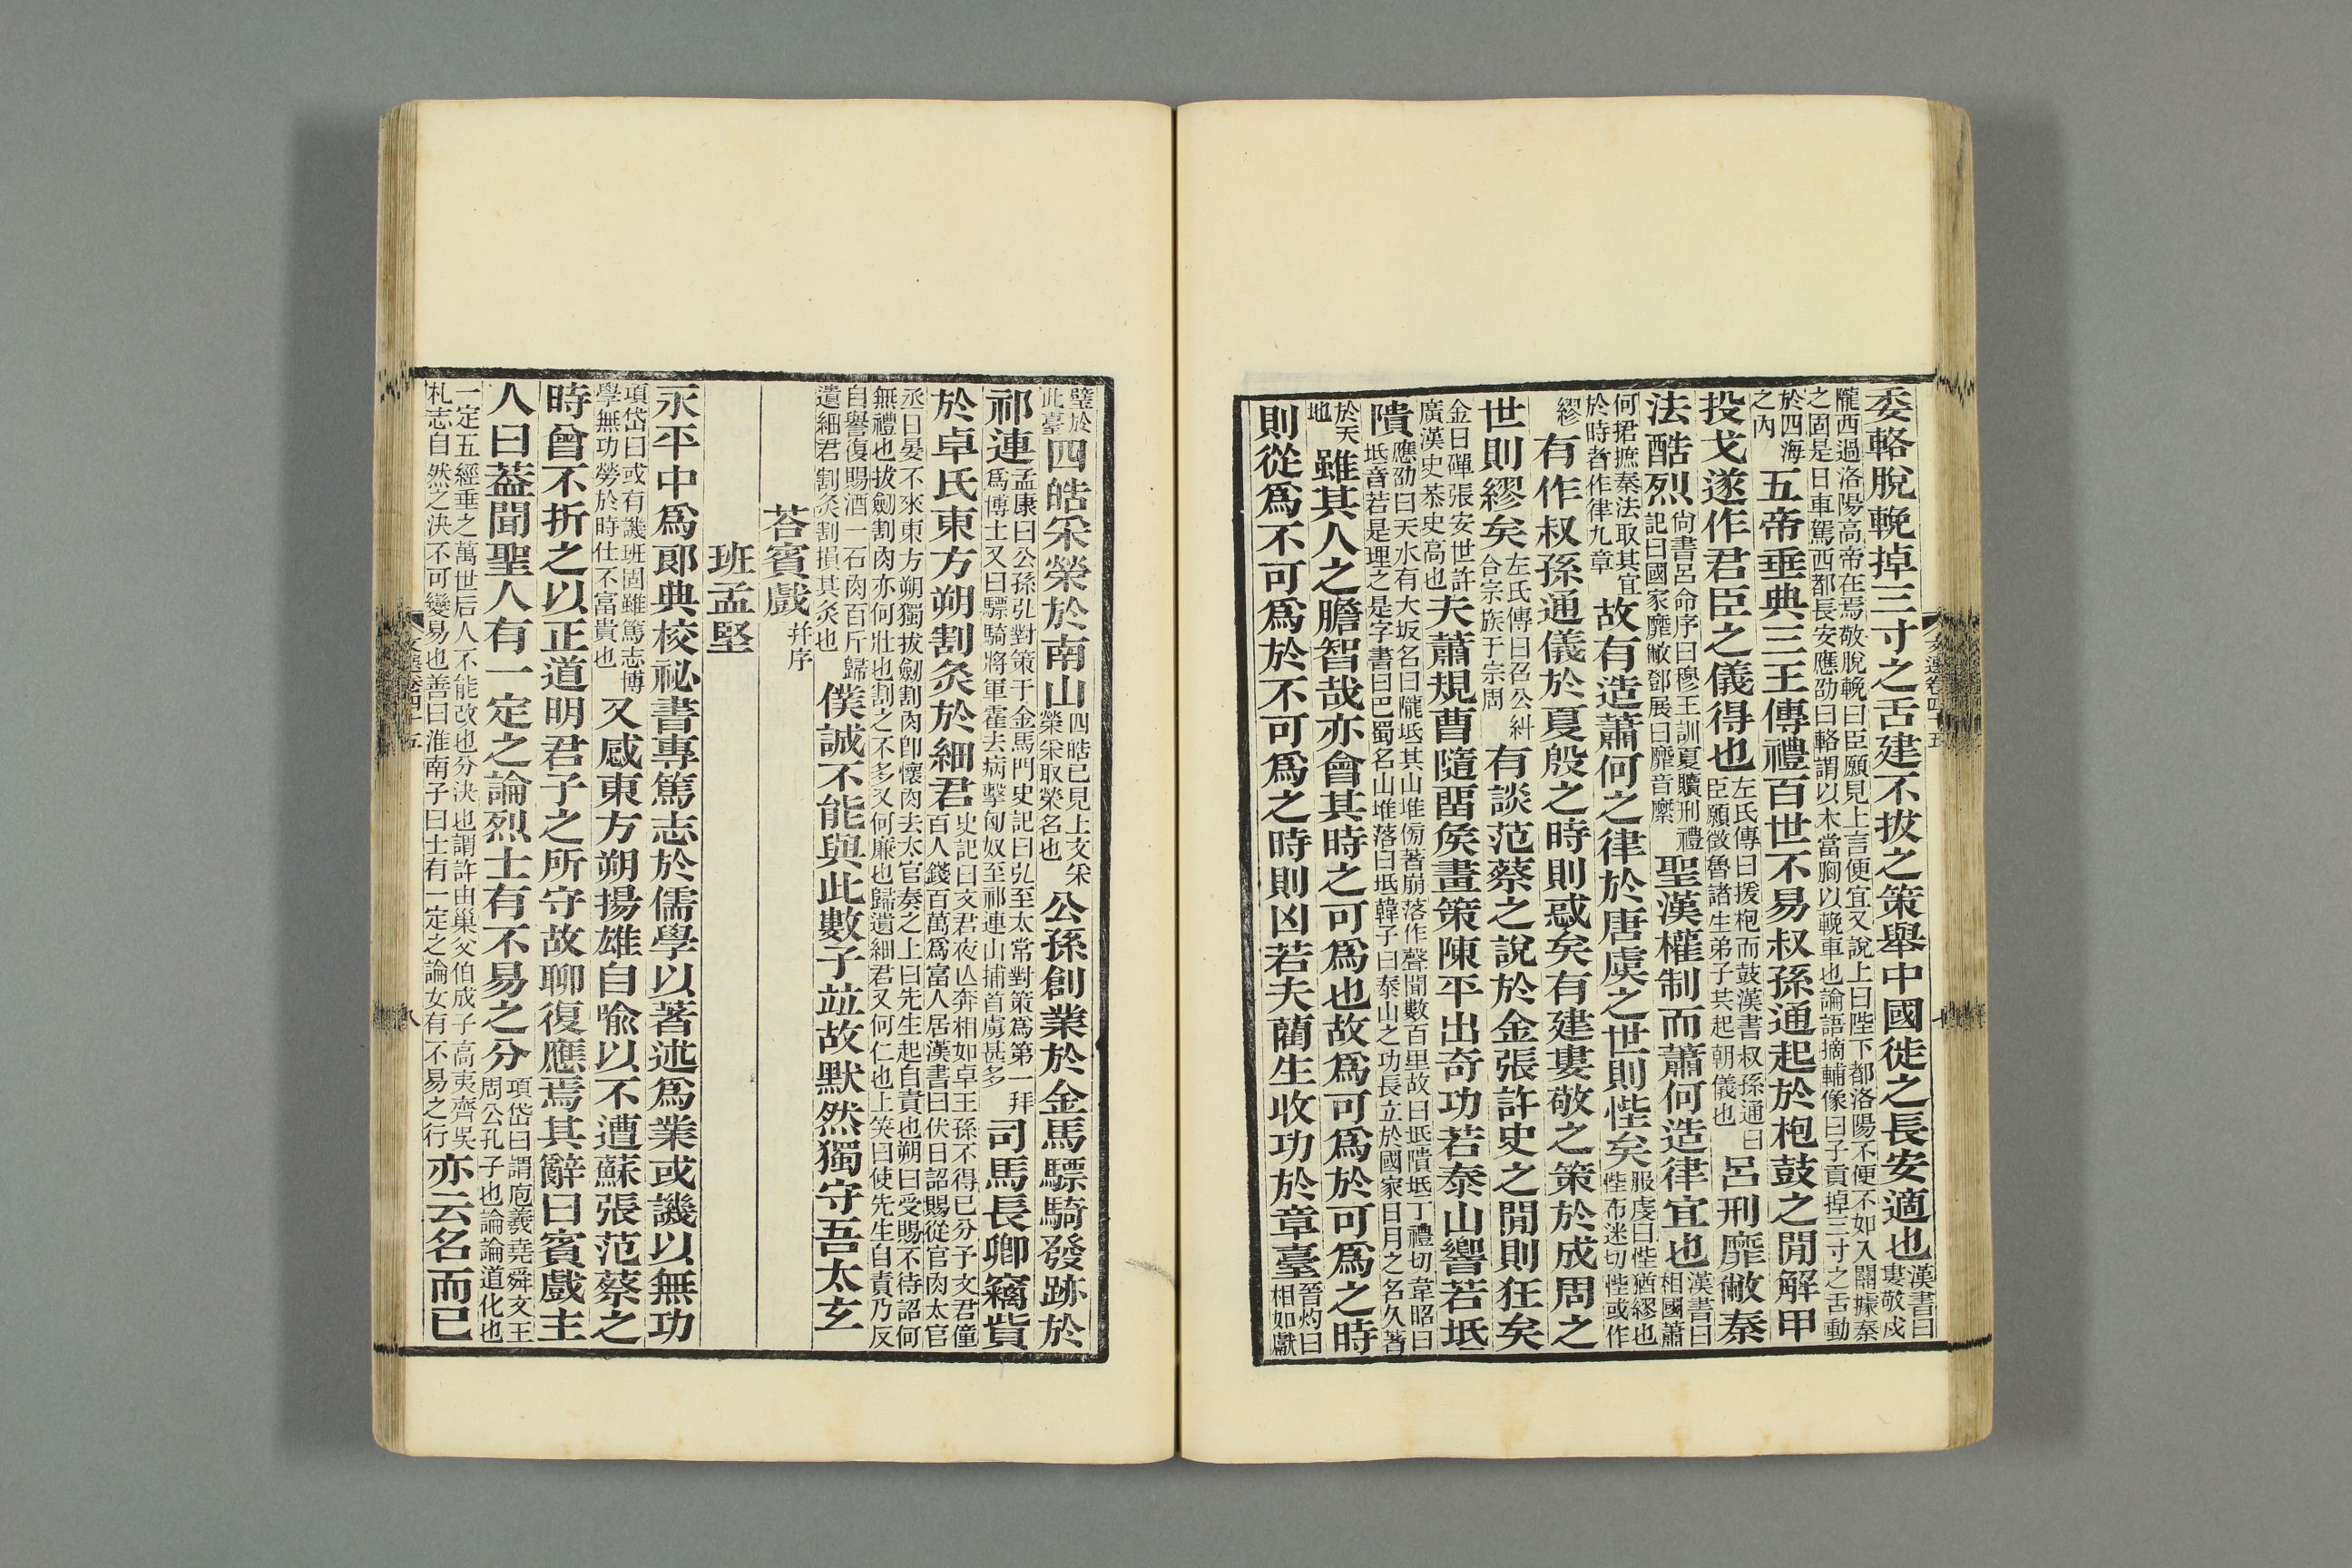 委輅脫輓掉三寸之舌建不拔之策舉中國徙之長安適也漢書曰婁敬戍
隴西過洛陽高帝在焉敬脫輓曰臣願見上言便宜又說上曰陛下都洛陽不便不如入關據秦
之固是日車駕西都長安應劭曰輅謂以木當胸以輓車也論語摘輔像曰子貢掉三寸之舌動
於四海之內五帝垂典三王傳禮百世不易叔孫通起於枹鼓之閒解甲
投戈遂作君臣之儀得也左氏傳曰援枹而鼓漢書叔孫通曰臣願徵魯諸生弟子共起朝儀也呂刑靡敝秦
法酷烈尙書呂命序曰穆王訓夏贖刑禮記曰國家靡敝鄧展曰靡音縻聖漢權制而蕭何造律宜也漢書曰相國蕭
何捃摭秦法取其宜於時者作律九章故有造蕭何之律於唐虞之世則悂矣服虔曰悂猶繆也悂布迷切悂或作
繆有作叔孫通儀於夏殷之時則惑矣有建婁敬之策於成周之
世則繆矣左氏傳曰召公糾合宗族于宗周有談范蔡之說於金張許史之閒則狂矣
金日磾張安世許廣漢史恭史高也夫蕭規曹隨畱矦畫策陳平出奇功若泰山響若坻
隤應劭曰天水有大坂名曰隴坻其山堆傍著崩落作聲聞數百里故曰坻隤坻丁禮切韋昭曰坻音若是理之是字書曰巴蜀名山堆落曰坻韓子曰泰山之功長立於國家日月之名久著
於天地雖其人之膽智哉亦會其時之可爲也故爲可爲於可爲之時
則從爲不可爲於不可爲之時則凶若夫藺生收功於章臺晉灼曰相如獻
文選卷四十五
璧於此臺四皓采榮於南山四皓已見上文采榮采取榮名也公孫創業於金馬驃騎發跡於
祁連孟康曰公孫弘對策于金馬門史記曰弘至太常對策爲第一拜爲博士又曰驃騎將軍霍去病擊匈奴至祁連山捕首虜甚多司馬長卿竊貲
於卓氏東方朔割炙於細君史記曰文君夜亾奔相如卓王孫不得已分予文君僮百人錢百萬爲富人居漢書曰伏日詔賜從官肉太官
丞日晏不來東方朔獨拔劒割肉卽懷肉去太官奏之上曰先生起自責也朔曰受賜不待詔何
無禮也拔劒割肉亦何壯也割之不多又何廉也歸遺細君又何仁也上笑曰使先生自責乃反
自譽復賜酒一石肉百斤歸遺細君割炙割損其炙也僕誠不能與此數子竝故默然獨守吾太玄
荅賓戲幷序
班孟堅
永平中爲郞典校祕書專篤志於儒學以著述爲業或譏以無功
項岱曰或有譏班固雖篤志博學無功勞於時仕不富貴也又感東方朔揚雄自喩以不遭蘇張范蔡之
時曾不折之以正道明君子之所守故聊復應焉其辭曰賓戲主
人曰蓋聞聖人有一定之論烈士有不易之分項岱曰謂庖羲堯舜文王周公孔子也論論道化也
一定五經垂之萬世后人不能改也分決也謂許由巢父伯成子高夷齊吳札志自然之決不可變易也善曰淮南子曰士有一定之論女有不易之行亦云名而已
文選卷四十五
八